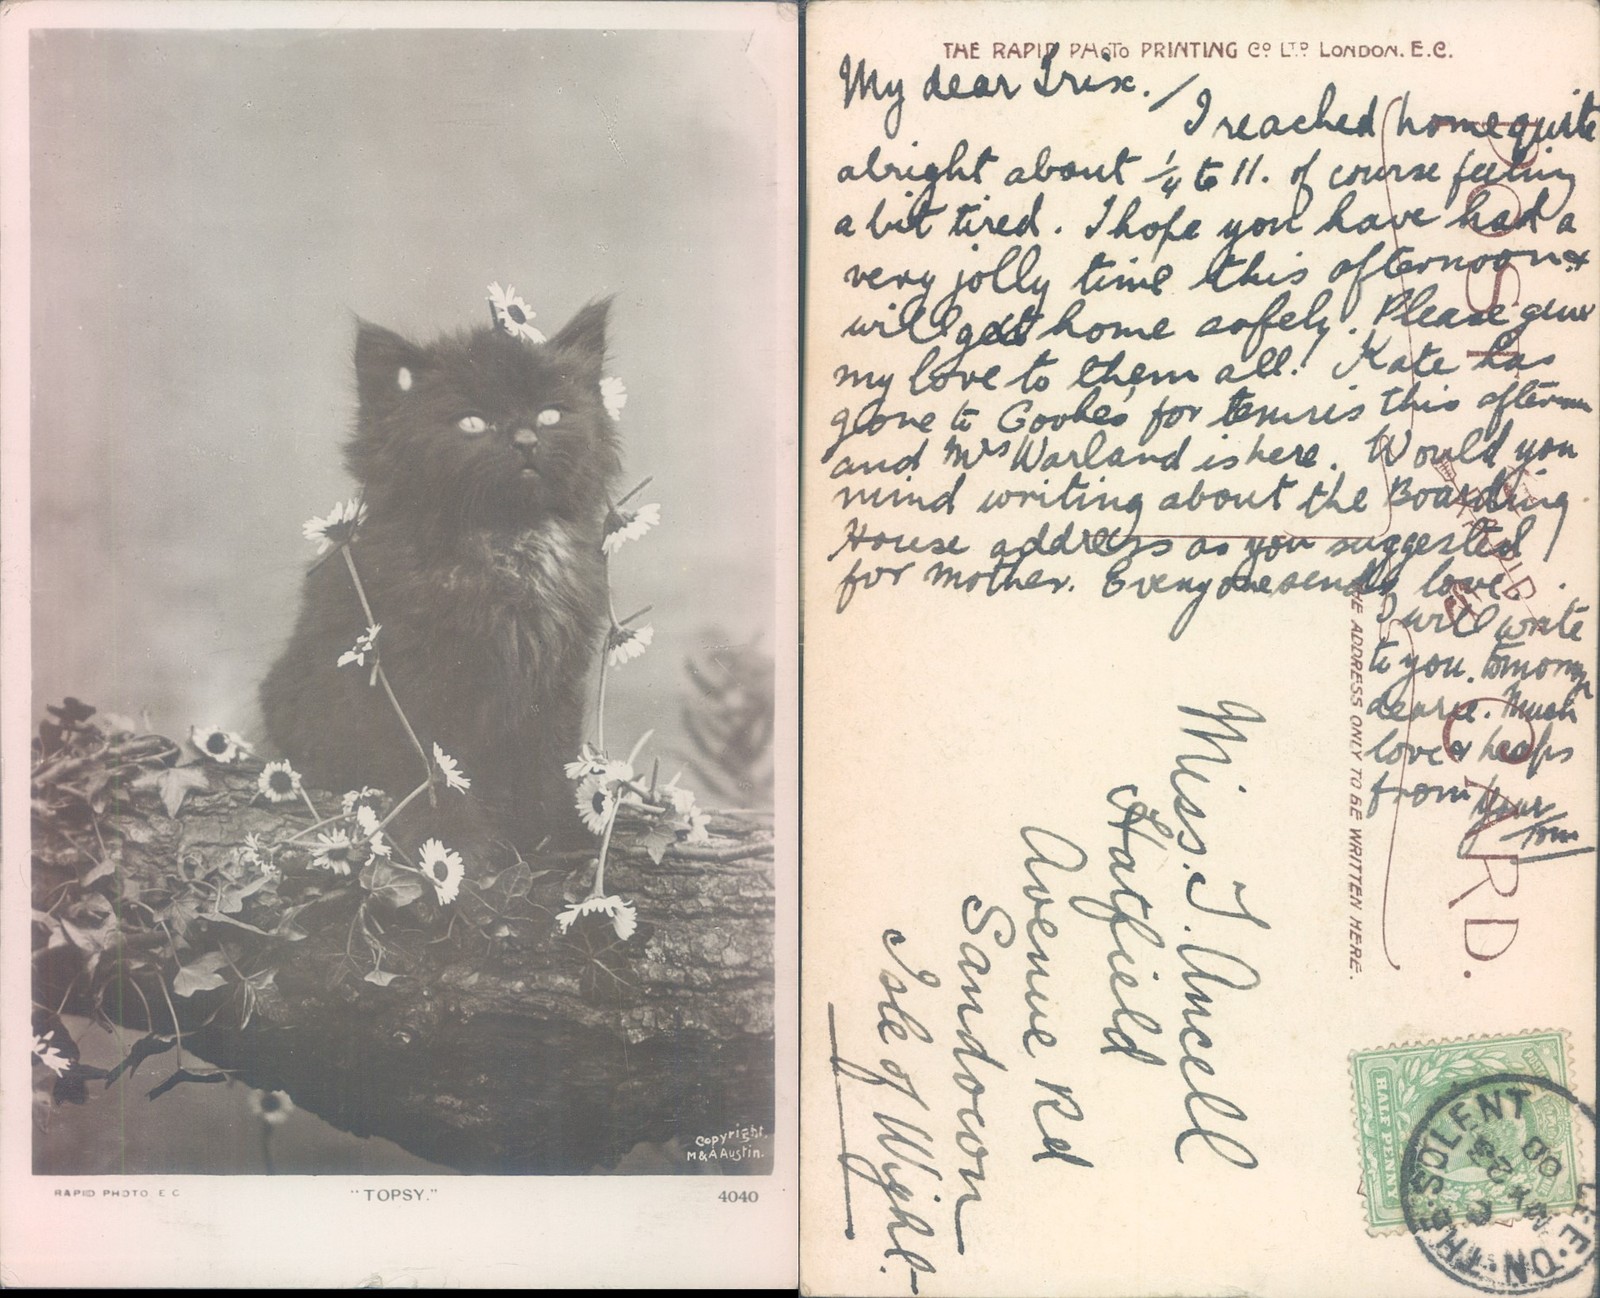 Copyright.
M & A Austin.
RAPID PHOTO E C
"TOPSY."
4040
THE RAPID PHOTO PRINTING CO LTD LONDON. E.C.
POST CARD.
THE ADDRESS ONLY TO BE WRITTEN HERE.
My dear Trix.
I reached home quite
alright about ¼ to 11. of course feeling
a bit tired. I hope you have had a
very jolly time this afternoon &
will get home safely. Please give
my love to them all! Kate has
gone to for tennis this afternoon
and Mrs Warland is here. Would you
mind writing about the Boarding
House address as you suggested
for mother. Everyone sends love.
I will write
to you tomorrow
dearie. Much
love & heaps
from your
Tom
Miss. I. Ancell
Hatfield
Avenue Rd
Sandown
Isle of Wight.
HALF PENNY
ON.THE.SOLENT
MY 23
08